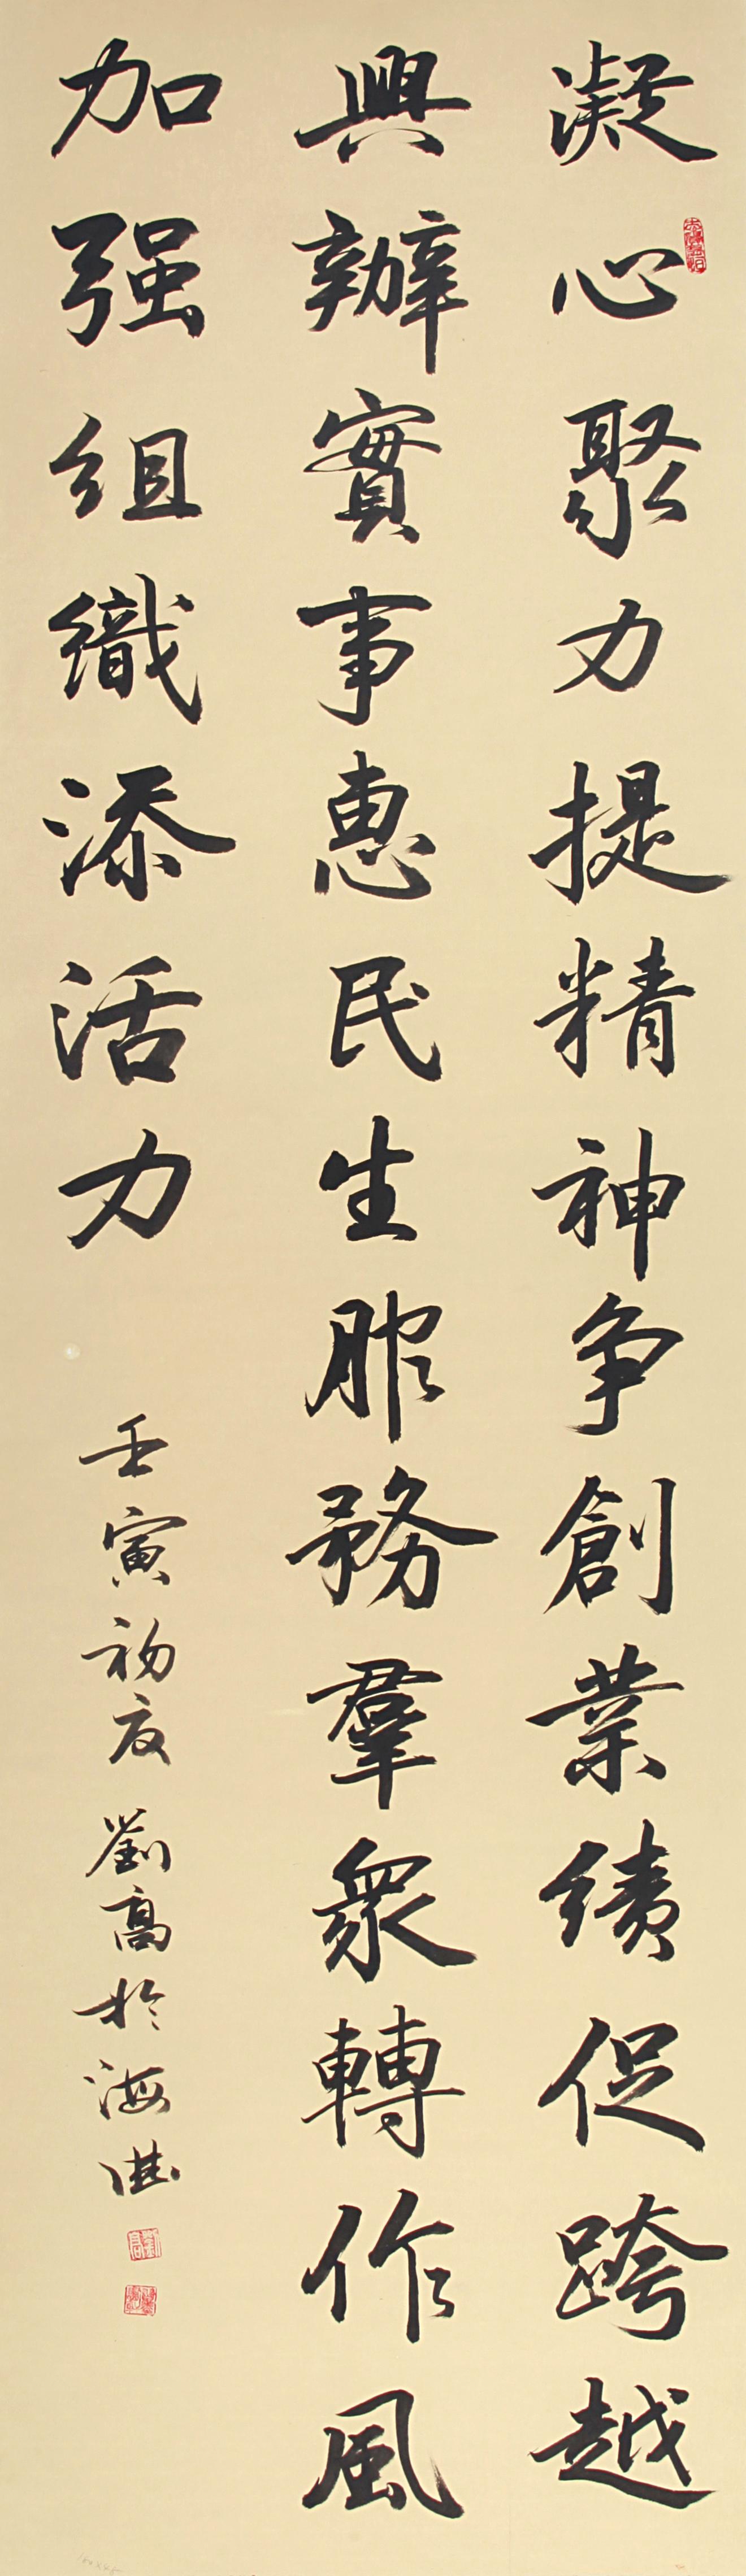 凝心聚力提精神争創業績促跨越
興辦實事惠民生服務羣衆轉作風
加强组織添活力
壬寅初夏劉高於海曲